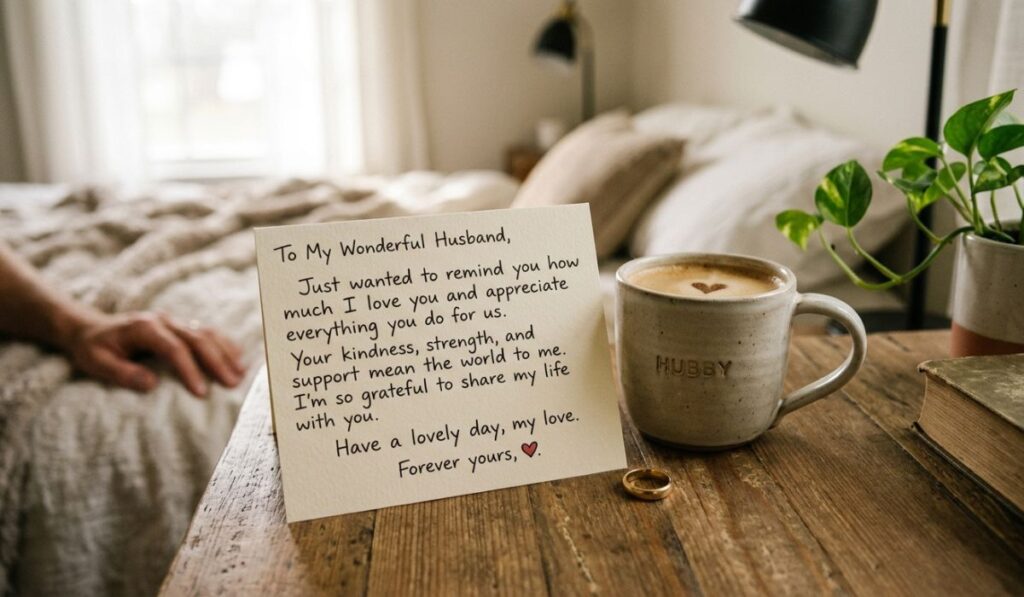 To My Wonderful Husband,
Just wanted to remind you how
much I love you and appreciate
everything you do for us.
Your kindness, strength, and
support mean the world to me.
I'm so grateful to share my life
with you.
Have a lovely day, my love.
Forever yours, ❤.
HUBBY